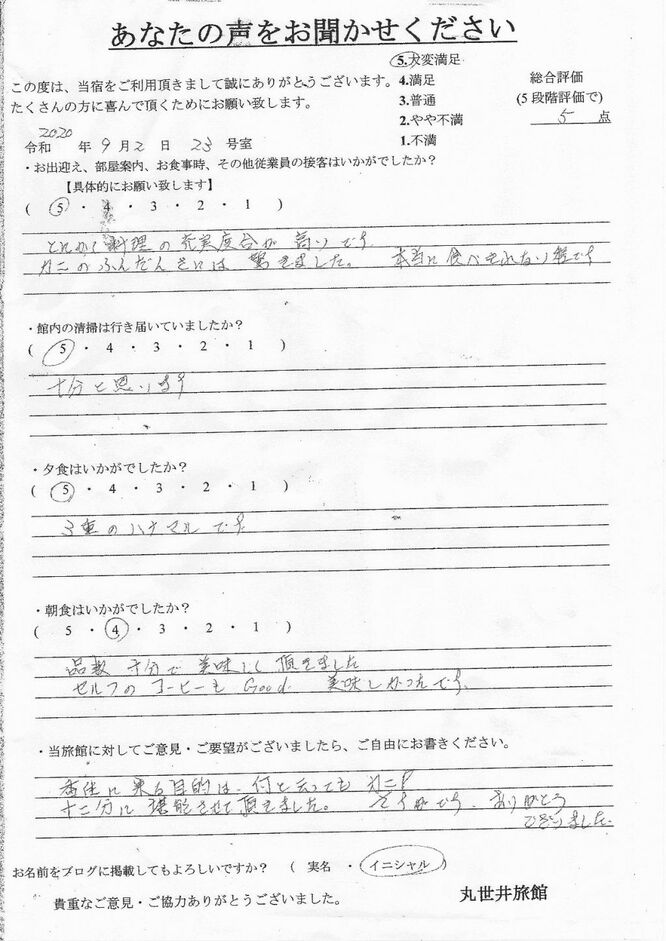 あなたの声をお聞かせください
この度は、当宿をご利用頂きまして誠にありがとうございます。
たくさんの方に喜んで頂くためにお願い致します。
5.大変満足
4.満足
3.普通
2.やや不満
1.不満
総合評価
(5段階評価で)
5 点
令和 2020 年 9月 2日 23 号室
・お出迎え、部屋案内、お食事時、その他従業員の接客はいかがでしたか?
【具体的にお願い致します】
( 5 ・ 4 ・ 3 ・ 2 ・ 1 )
とにかく料理の充実度合が高いです
カニのふんだんさには驚きました。 本当に食べきれない程です
・館内の清掃は行き届いていましたか?
( 5 ・ 4 ・ 3 ・ 2 ・ 1 )
十分と思います
・夕食はいかがでしたか?
( 5 ・ 4 ・ 3 ・ 2 ・ 1 )
3重のハナマルです
・朝食はいかがでしたか?
( 5 ・ 4 ・ 3 ・ 2 ・ 1 )
品数 十分で 美味しく 頂きました
セルフのコーヒーも Good. 美味しかったです。
・当旅館に対してご意見・ご要望がございましたら、ご自由にお書きください。
香住に来る目的は、何と云っても カニ!
十二分に堪能させて頂きました。 ありがとう
ございました.
お名前をブログに掲載してもよろしいですか? ( 実名 ・ イニシャル )
貴重なご意見・ご協力ありがとうございました。
丸世井旅館